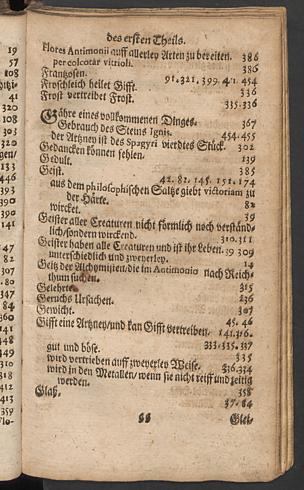 des ersten Theils.
Flores Antimonii auff allerley Arten zu bereiten. 386
per colcotar vitrioli. 386
Frantzosen. 91. 321. 399. 454
Froschleich heilet Gifft. 336
Frost vertreibet Frost. 335. 336
Gähre eines vollkommenen Dinges. 367
Gebrauch des Steins Ignis. 454. 455
der Artzney ist des Spagyri vierdtes Stück. 302
Gedancken können fehlen. 139
Gedult. 385
Geist. 42. 82. 145. 151. 174
aus dem philosophischen Saltze giebt victoriam zu
der Härte. 82
wircket. 39
Geister aller Creaturen nicht förmlich noch verständ-
lich/sondern wirckend. 310. 311
Geister haben alle Creaturen und ist ihr Leben. 39 309
unterschiedlich und zweyerley. 14
Geitz der Alchymisten/die im Antimonio nach Reich-
thum suchen. 307
Gelehrte. 315
Geruchs Ursachen. 236
Gewicht. 307
Gifft eine Artzney/und kan Gifft vertreiben. 45. 46
141. 316.
333. 335. 337
gut und böse. 335
wird vertrieben auff zweyerley Weise. 336. 334
wird in den Metallen/wenn sie nicht reiff und zeitig
werden. 358
Glaß. 37. 84
Glei-
19
57
108
41
320
108
80
347
84
90
318
412
413
359